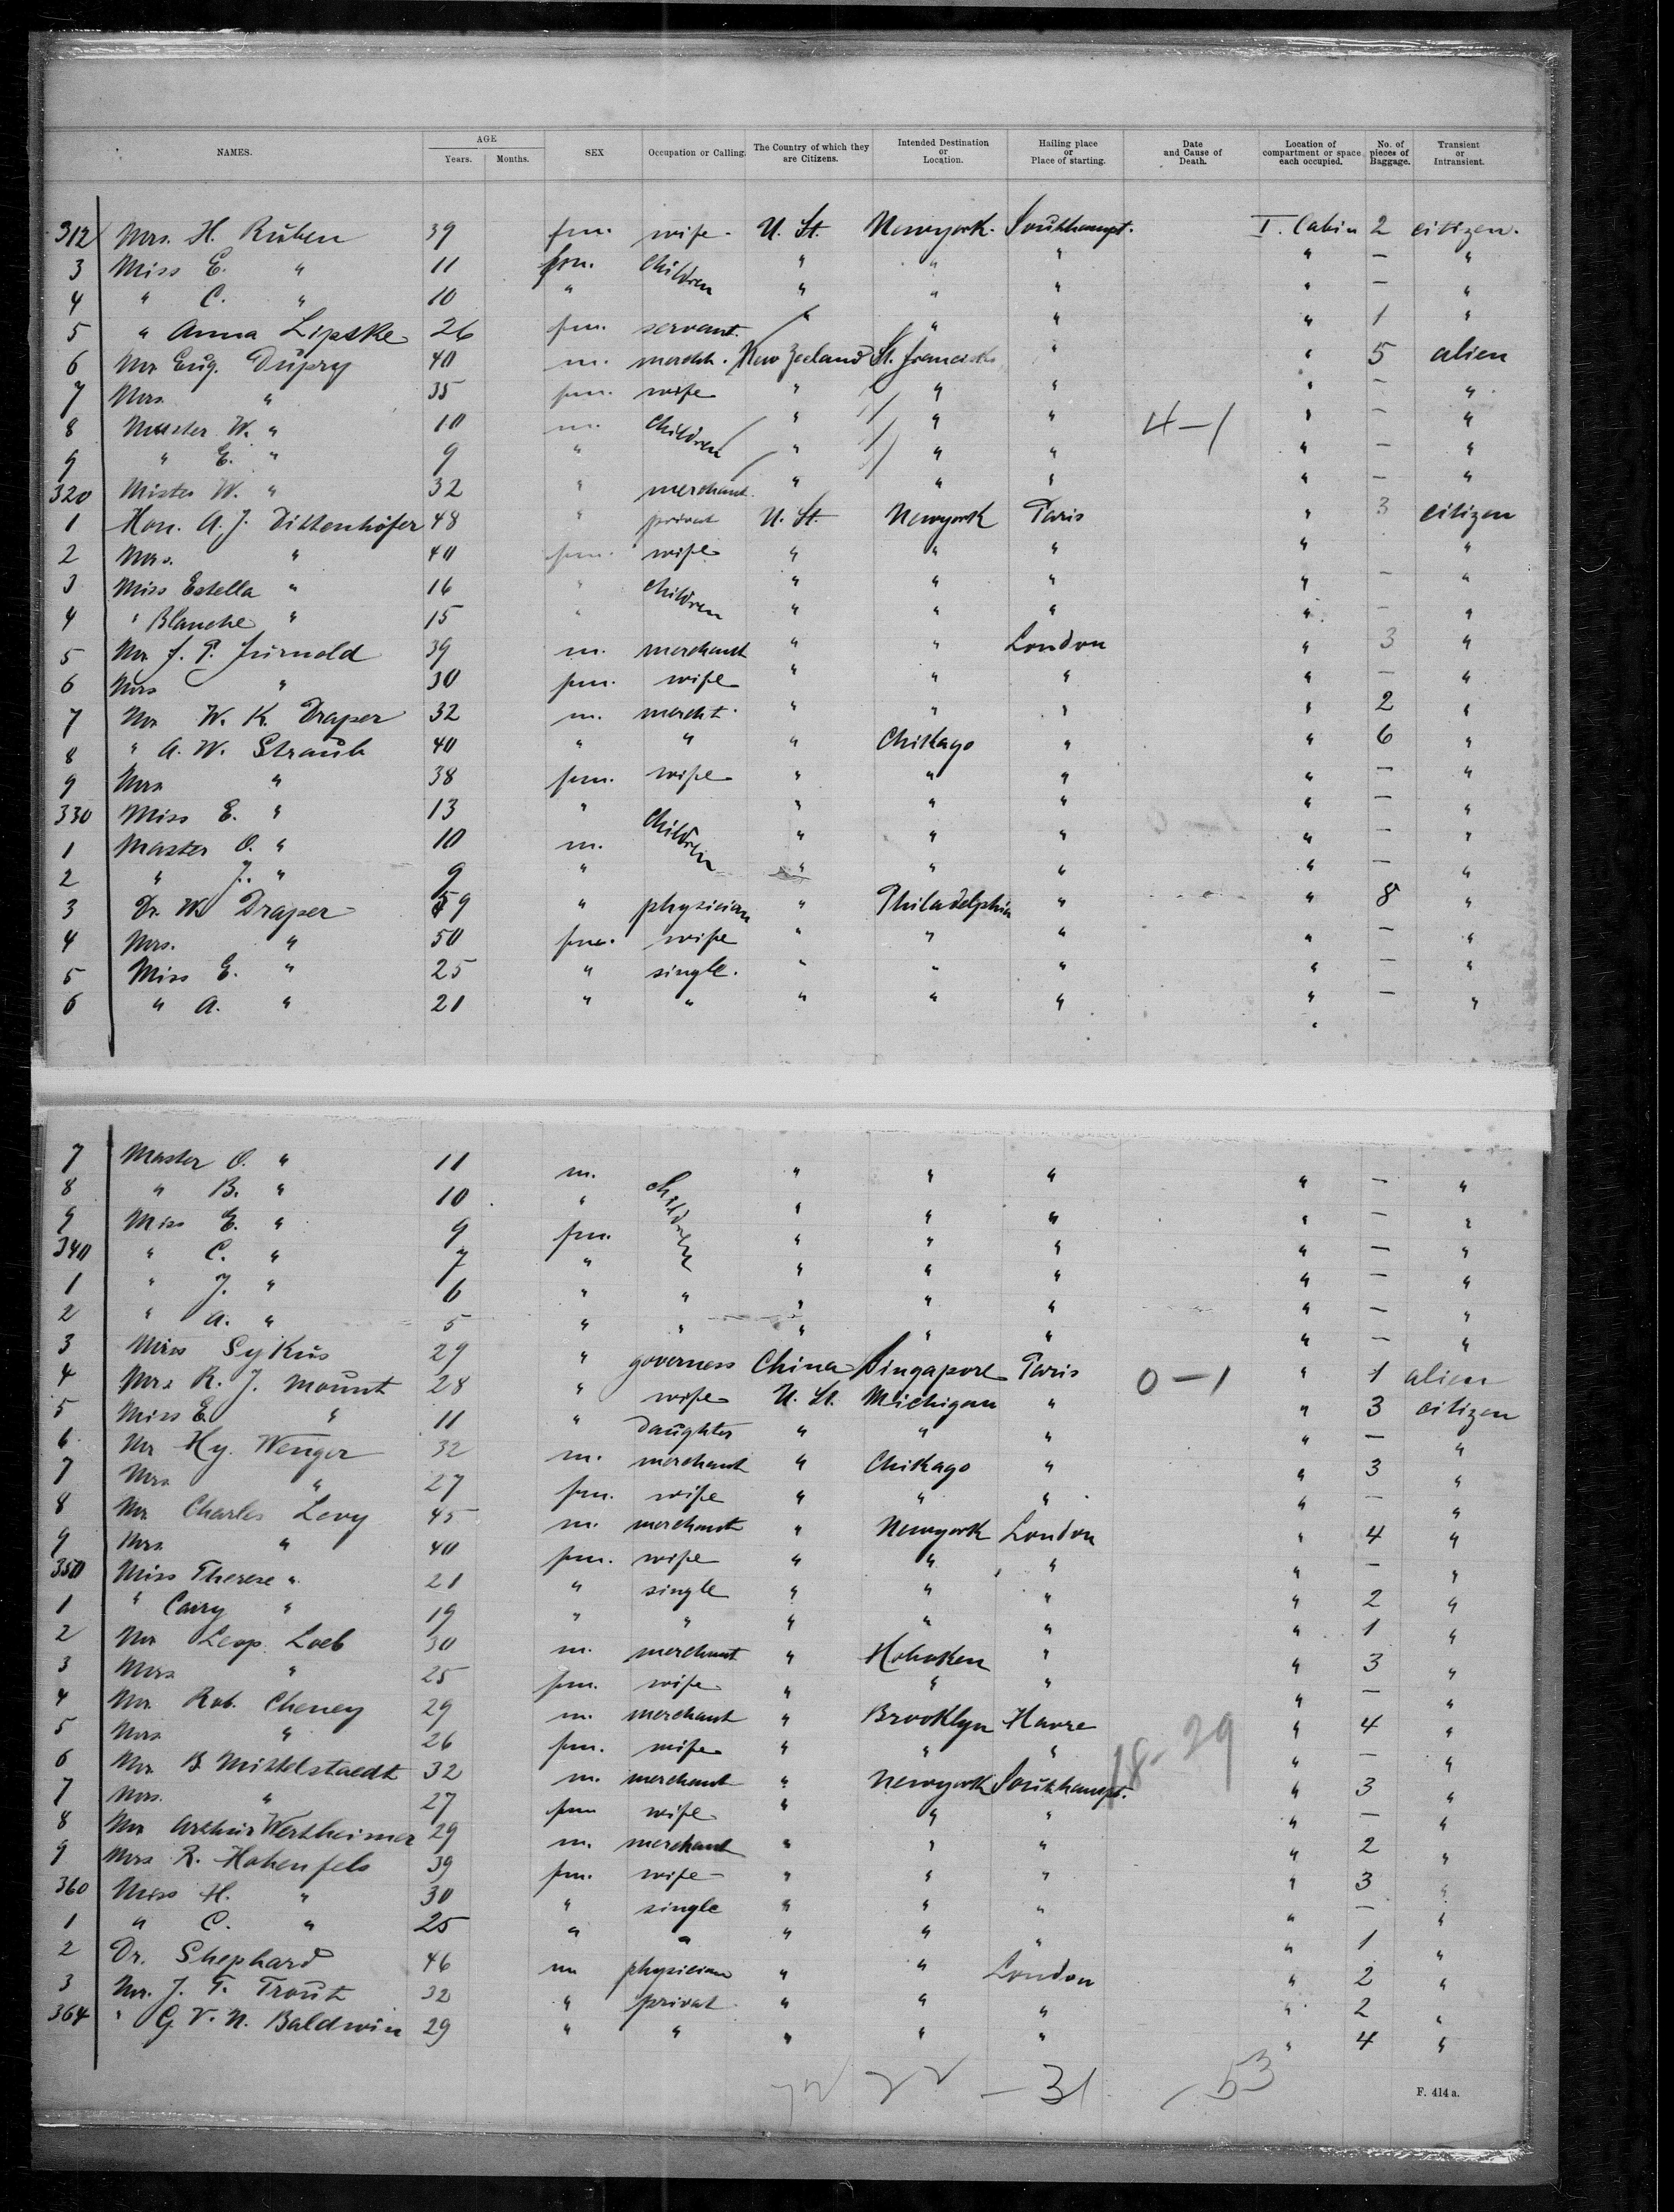 NAMES. AGE Years. Months. SEX Occupation or Calling. The Country of which they are Citizens. Intended Destination or Location. Hailing place or Place of starting. Date and Cause of Death. Location of compartment or space each occupied. No. of pieces of Baggage. Transient or Intransient.
312 Mrs. H. Rŭben 39 fm. wife. U. St. Newyork. Soŭthampt. I. Cabin 2 citizen.
3 Miss E. " 11 fm. children " " " " — "
4 " C. " 10 " " " " " — "
5 " Anna Lipske 26 fm. servant. " " " " 1 "
6 Mr Eug. Dŭpry 40 m. mercht. New Zeeland St. Francisko " " 5 alien
7 Mrs. " 35 fm. wife " " " " — "
8 Master W. " 10 m. children " " " 4—1 " — "
9 " E. " 9 " " " " " — "
320 Mister W. " 32 " merchant. " " " " — "
1 Hon. A. J. Dittenhöfer 48 " privat U. St. Newyork Paris " 3 citizen
2 Mrs. " 40 fm. wife " " " " "
3 Miss Estella " 16 " children " " " " — "
4 " Blanche " 15 " " " " " — "
5 Mr J. P. Jŭrnold 39 m. merchant " " London " 3 "
6 Mrs " 30 fm. wife " " " " — "
7 Mr W. K. Draper 32 m. mercht. " " " " 2 "
8 " A. W. Straŭb 40 " " " Chikago " " 6 "
9 Mrs " 38 fm. wife " " " " — "
330 Miss E. " 13 " children " " " " — "
1 Master O. " 10 m. " " " " — "
2 " J. " 9 " " " " " — "
3 Dr. W. Draper 59 " physician " Philadelphia " " 8 "
4 Mrs. " 50 fm. wife " " " " — "
5 Miss E. " 25 " single. " " " " — "
6 " A. " 21 " " " " " " — "
7 Master O. " 11 m. children " " " " — "
8 " B. " 10 " " " " " — "
9 Miss E. " 9 fm. " " " " — "
340 " C. " 7 " " " " " — "
1 " J. " 6 " " " " " " — "
2 " A. " 5 " " " " " " — "
3 Miss Sykŭs 29 " governess China Singapore Paris 0—1 " 1 alien
4 Mrs R. J. Moŭnt 28 " wife U. St. Michigan " " 3 citizen
5 Miss E. " 11 " Daŭghter " " " " — "
6 Mr Hy. Wenger 32 m. merchant " Chikago " " 3 "
7 Mrs. " 27 fm. wife " " " " — "
8 Mr Charles Levy 45 m. merchant " Newyork London " 4 "
9 Mrs. " 40 fm. wife " " " " — "
350 Miss Therese " 21 " single " " " " 2 "
1 " Carry " 19 " " " " " " 1 "
2 Mr Leop. Loeb 30 m. merchant " Hoboken " " 3 "
3 Mrs " 25 fm. wife " " " " — "
4 Mr. Rob. Cheney 29 m. merchant " Brooklyn Havre " 4 "
5 Mrs. " 26 fm. wife " " " 18-29 " — "
6 Mr B Mittelstaedt 32 m. merchant " Newyork Soŭthampt. " 3 "
7 Mrs. " 27 fm wife " " " " — "
8 Mr Arthŭr Wertheimer 29 m. merchant " " " " 2 "
9 Mrs R. Hohenfels 39 fm. wife " " " " 3 "
360 Miss H. " 30 " single " " " " — "
1 " C. " 25 " " " " " " 1 "
2 Dr. Shephard 46 m physician " " London " 2 "
3 Mr. J. T. Troŭt 32 " privat " " " " 2 "
364 " G. V. N. Baldwin 29 " " " " " " 4 "
22 — 31 53
F. 414 a.